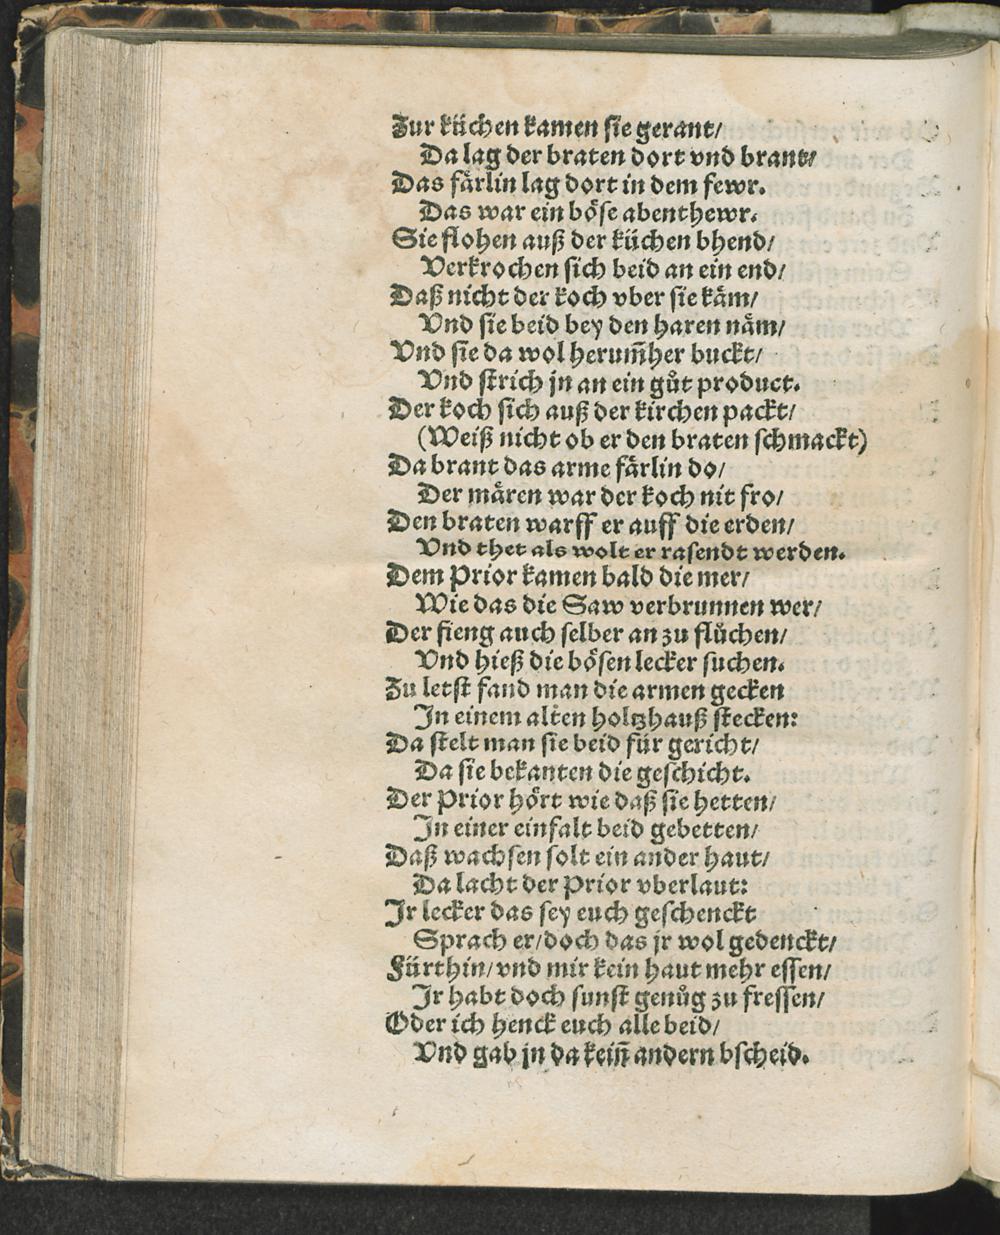 Zur küchen kamen sie gerant/
Da lag der braten dort vnd brant/
Das fårlin lag dort in dem fewr.
Das war ein bôse abenthewr.
Sie flohen auß der küchen bhend/
Verkrochen sich beid an ein end/
Daß nicht der koch vber sie kåm/
Vnd sie beid bey den haren nåm/
Vnd sie da wol herum̃her buckt/
Vnd strich jn an ein gůt product.
Der koch sich auß der kirchen packt/
(Weiß nicht ob er den braten schmackt)
Da brant das arme fårlin do/
Der måren war der koch nit fro/
Den braten warff er auff die erden/
Vnd thet als wolt er rasendt werden.
Dem Prior kamen bald die mer/
Wie das die Saw verbrunnen wer/
Der fieng auch selber an zu flůchen/
Vnd hieß die bôsen lecker suchen.
Zu letst fand man die armen gecken
In einem alten holtzhauß stecken:
Da stelt man sie beid für gericht/
Da sie bekanten die geschicht.
Der Prior hôrt wie daß sie hetten/
In einer einfalt beid gebetten/
Daß wachsen solt ein ander haut/
Da lacht der Prior vberlaut:
Jr lecker das sey euch geschenckt
Sprach er/doch das jr wol gedenckt/
Fürthin/vnd mir kein haut mehr essen/
Jr habt doch sunst genůg zu fressen/
Oder ich henck euch alle beid/
Vnd gab jn da kein̄ andern bscheid.